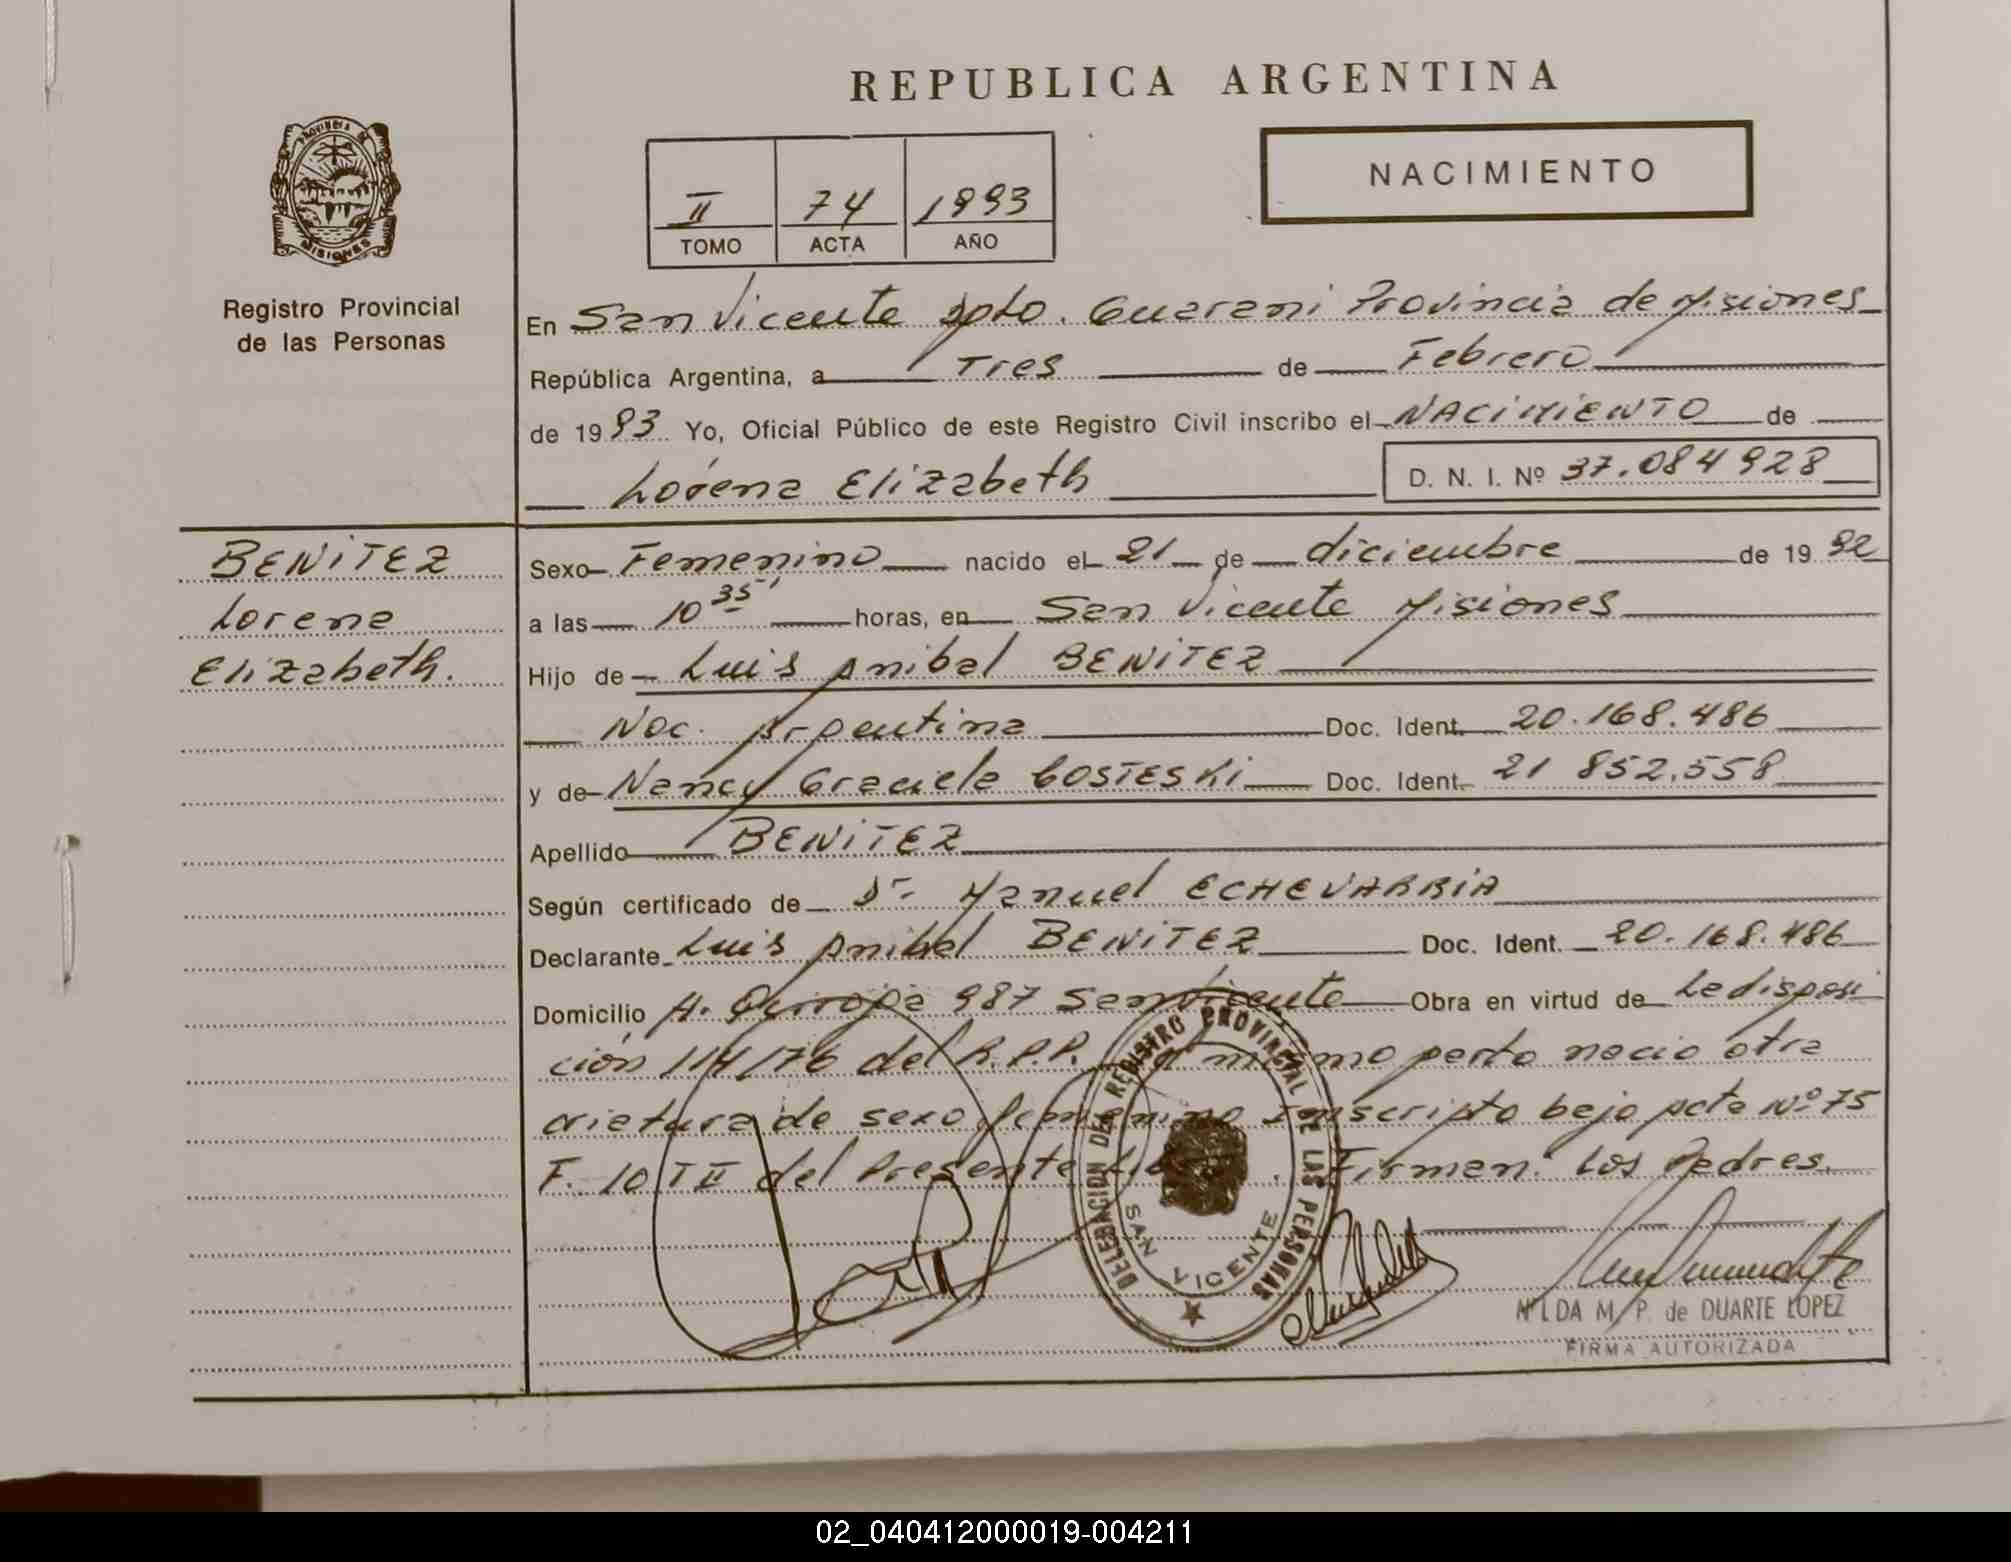 REPUBLICA ARGENTINA
NACIMIENTO
II 74 1993
TOMO ACTA AÑO
PROVINCIA DE
MISIONES
Registro Provincial
de las Personas
En San Vicente Dpto. Guarani Provincia de Misiones
República Argentina, a Tres de Febrero
de 1993 Yo, Oficial Público de este Registro Civil inscribo el NACIMIENTO de
Lorena Elizabeth D. N. I. Nº 37.084928
BENITEZ
Lorena
Elizabeth.
Sexo Femenino nacido el 21 de diciembre de 1992
a las 10 35' horas, en San Vicente Misiones
Hijo de Luis Anibal BENITEZ
Nac. Argentina Doc. Ident. 20.168.486
y de Nancy Graciela COSTESKI Doc. Ident. 21 852.558
Apellido BENITEZ
Según certificado de Dr. Manuel ECHEVARRIA
Declarante Luis Anibal BENITEZ Doc. Ident. 20.168.486
Domicilio H. 987 San Vicente Obra en virtud de La disposi
ción 114/76 del R.P.P. mismo parto nacio otra
criatura de sexo femenino Inscripta bajo Acta Nº 75
F. 10 T II del Presente Firman: Los Padres.
DELEGACION DEL REGISTRO PROVINCIAL DE LAS PERSONAS
SAN VICENTE
NILDA M. P. de DUARTE LOPEZ
FIRMA AUTORIZADA
02_040412000019-004211